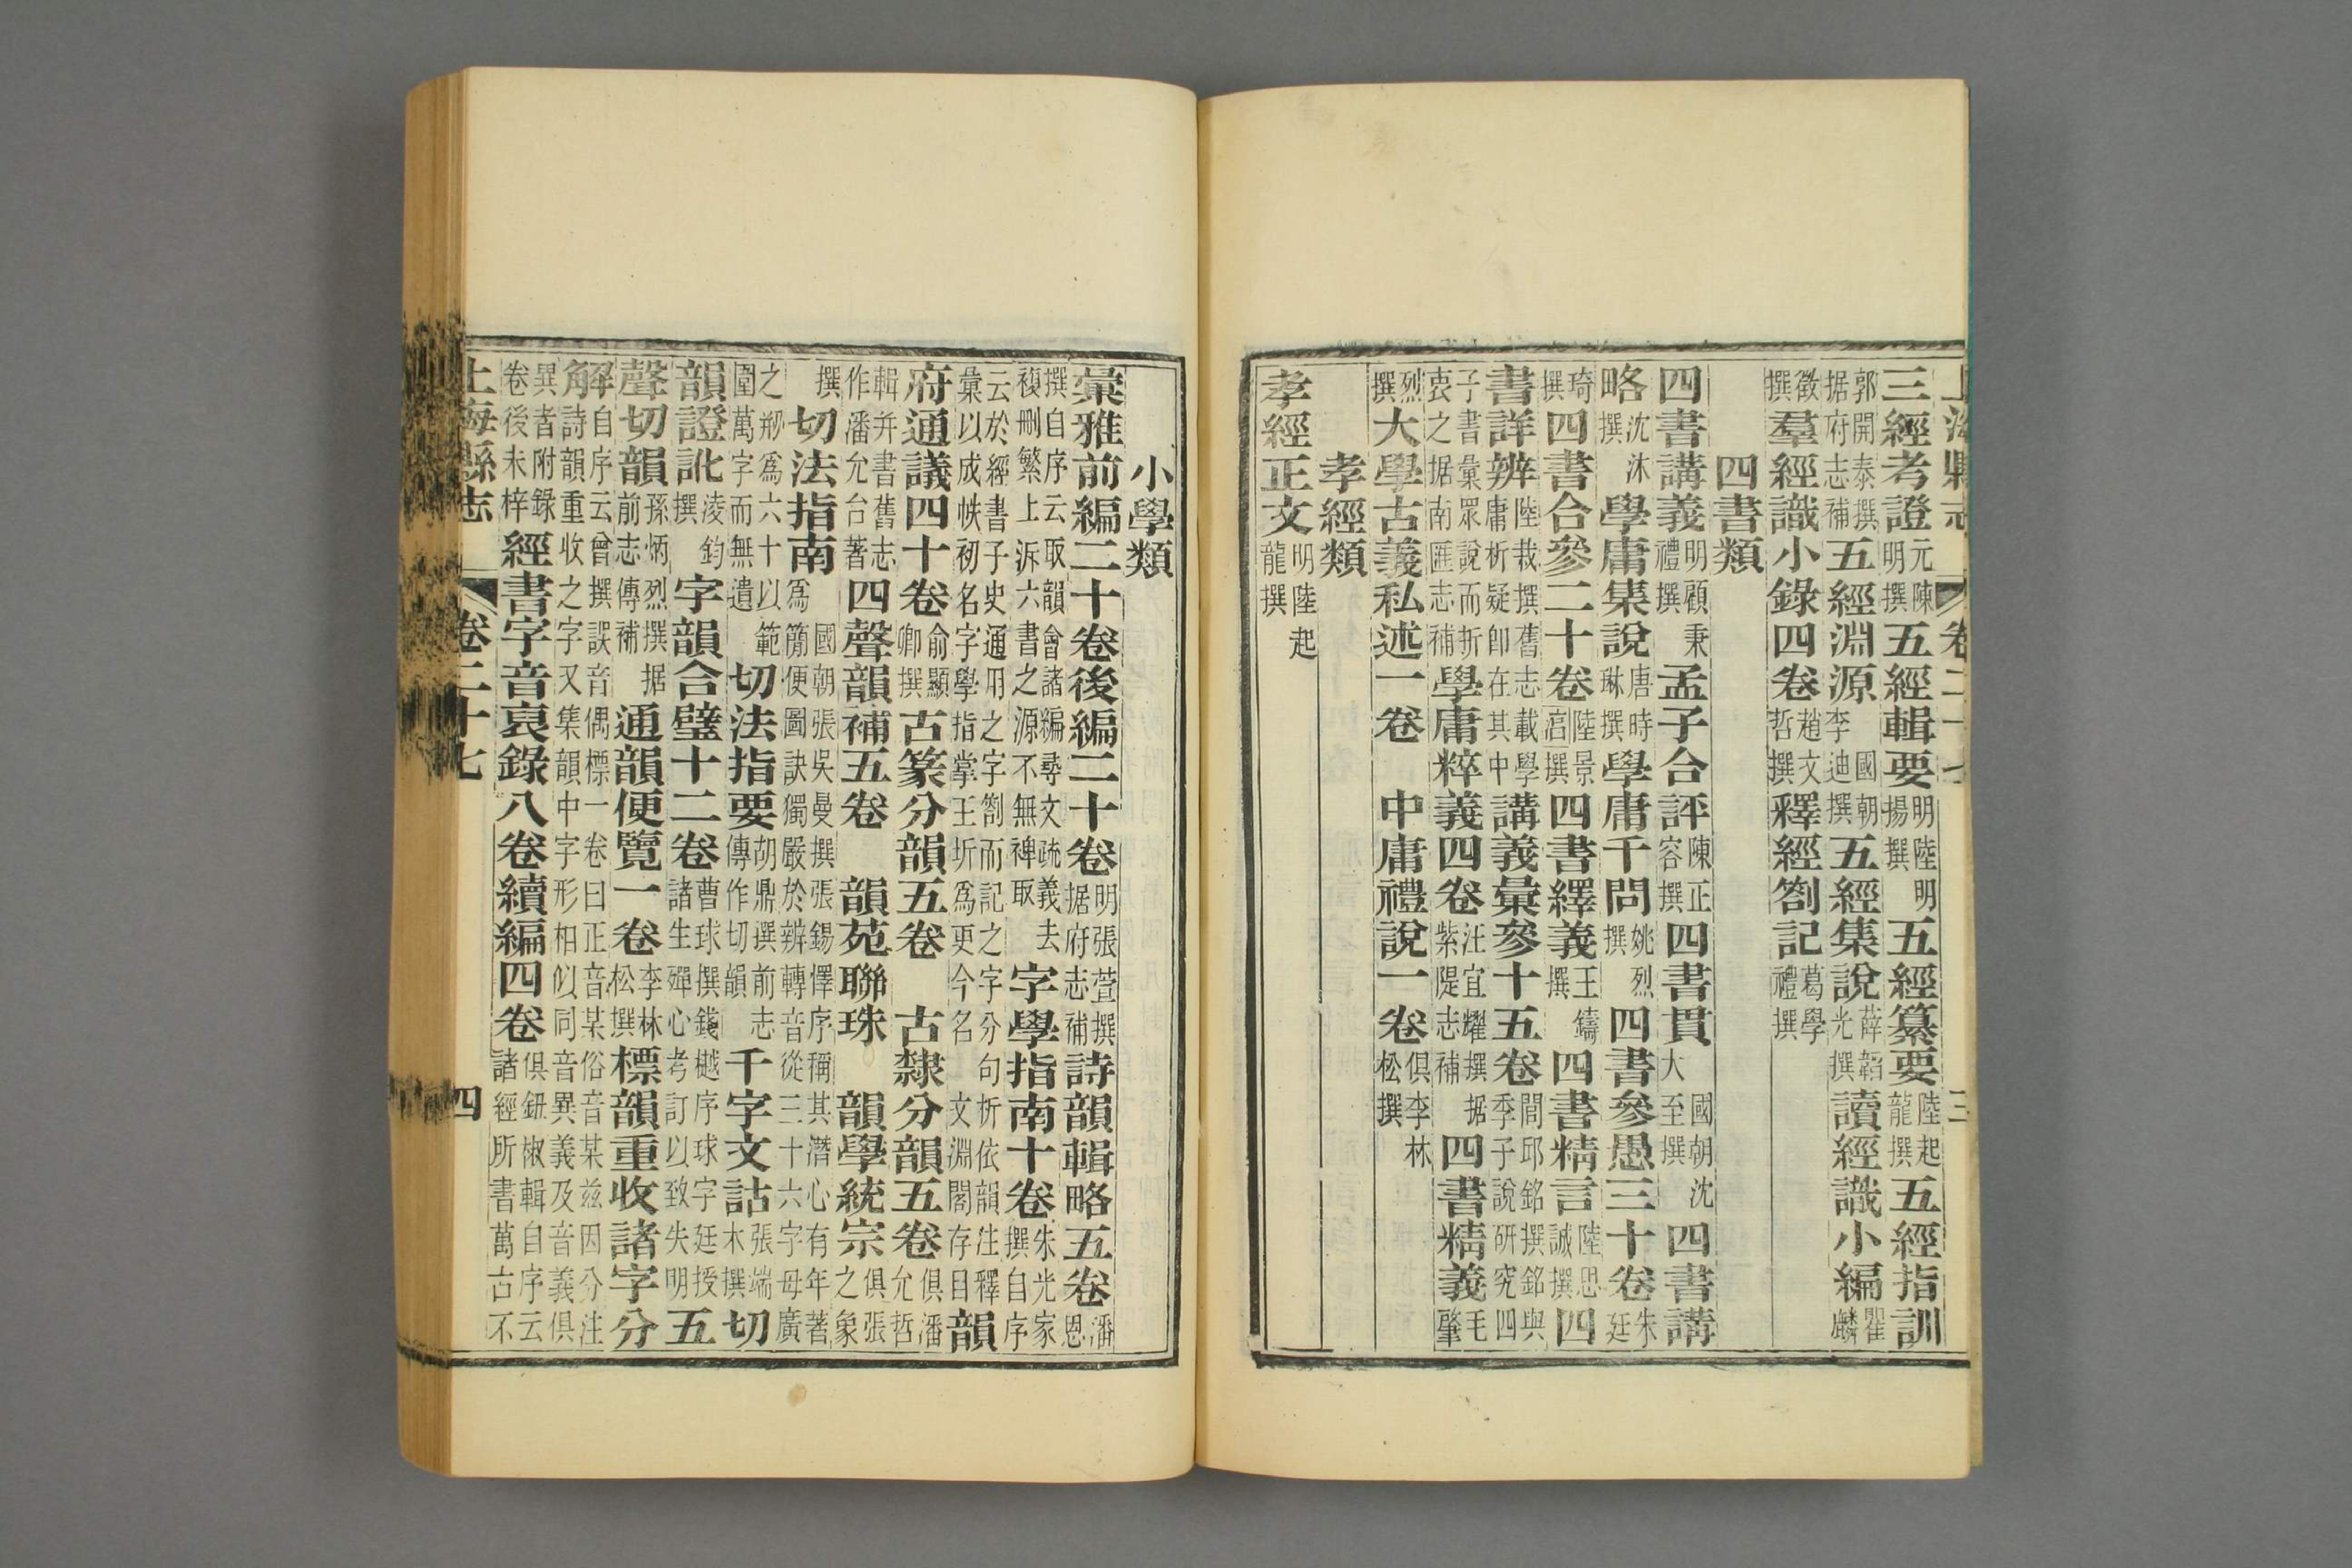 上海縣志 卷二十七 三
三經考證 元陳明撰 五經輯要 明陸明揚撰 五經纂要 陸起龍撰 五經指訓
郭開泰撰据府志補 五經淵源 國朝李迪撰 五經集說 薛韜光撰 讀經識小編 瞿麟
徵撰 羣經識小錄四卷 趙文哲撰 釋經劄記 葛學禮撰
四書類
四書講義 明顧秉禮撰 孟子合評 陳正容撰 四書貫 國朝沈大至撰 四書講
略 沈沐撰 學庸集說 唐時琳撰 學庸千問 姚烈撰 四書參愚三十卷 朱廷
琦撰 四書合參二十卷 陸景宮撰 四書繹義 王鑄撰 四書精言 陸思誠撰 四
書詳辨 陸栽撰舊志載學庸析疑卽在其中 講義彙參十五卷 閭邱銘撰銘與季子說研究四
子書彙眾說而折衷之据南匯志補 學庸粹義四卷 汪宜耀撰据紫隄志補 四書精義 毛肇
烈撰 大學古義私述一卷 中庸禮說一卷 俱李林松撰
孝經類
孝經正文 明陸起龍撰
小學類
彙雅前編二十卷後編二十卷 明張萱撰据府志補 詩韻輯略五卷 潘恩
撰自序云取韻會諸編尋文疏義去複刪繁上泝六書之源不無裨取 字學指南十卷 朱光家撰自序
云於經書子史通用之字劄而記之字分句析依韻注釋彙以成帙初名字學指掌王圻為更今名文淵閣存目 韻
府通議四十卷 俞顯卿撰 古篆分韻五卷 古隸分韻五卷 俱潘允哲
輯并書舊志作潘允台著 四聲韻補五卷 韻苑聯珠 韻學統宗 俱張之象
撰 切法指南 國朝張吳曼撰張錫懌序稱其潛心有年著為簡便圖訣獨嚴於辨轉音從三十六字母廣
之剏為六十以範圍萬字而無遺 切法指要 胡鼎撰前志傳作切韻 千字文詁 張端木撰 切
韻證訛 淩鈞撰 字韻合璧十二卷 曹球撰錢樾序球字廷授諸生殫心考訂以致失明 五
聲切韻 孫炳烈撰据前志傳補 通韻便覽一卷 李林松撰 標韻重收諸字分
解 自序云曾撰誤音偶標一卷曰正音某俗音某兹因分注詩韻重收之字又集韻中字形相似同音異義及音義俱
異者附錄卷後未梓 經書字音裒錄八卷續編四卷 俱鈕椒輯自序云諸經所書萬古不
上海縣志 卷二十七 四